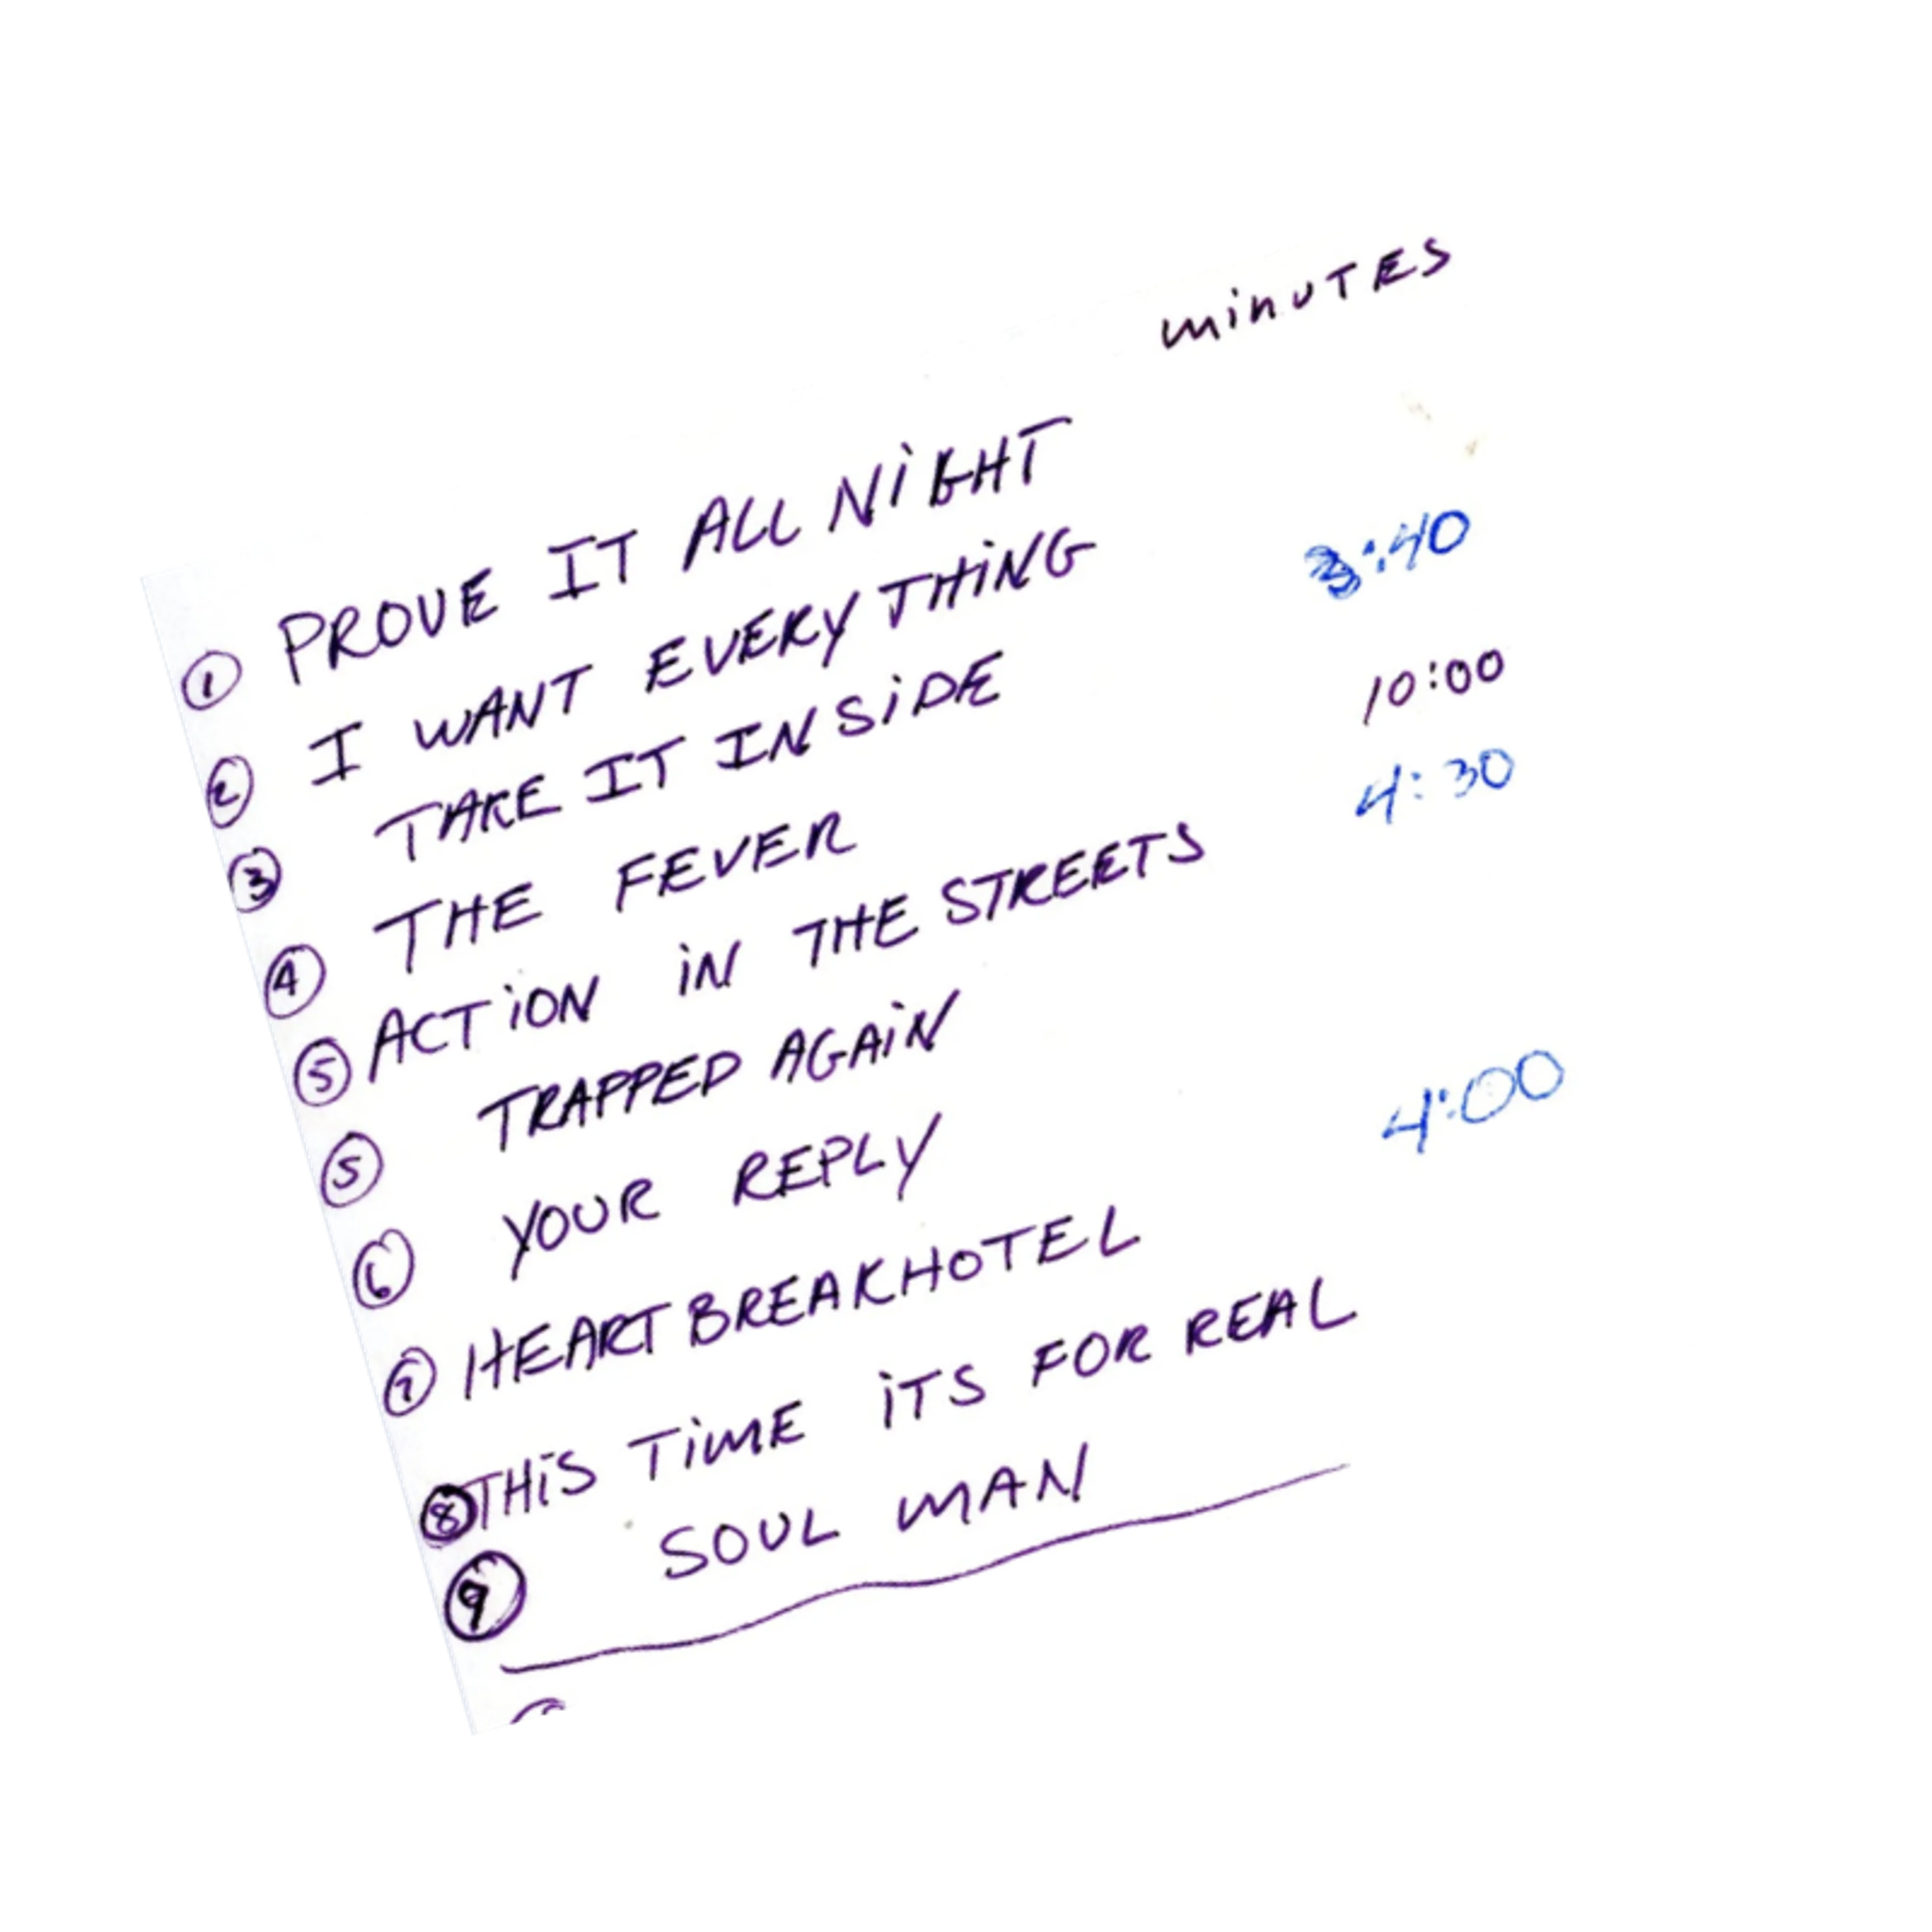 minUTES
① PROVE IT ALL NiGHT
② I WANT EVERY THiNG
③ TAKE IT INSiDE 3:40
④ THE FEVER 10:00
⑤ ACTiON iN THE STREETS 4:30
⑤ TRAPPED AGAiN
⑥ YOUR REPLY
⑦ HEARTBREAK HOTEL 4:00
⑧ THiS TiME iTS FOR REAL
⑨ SOUL MAN